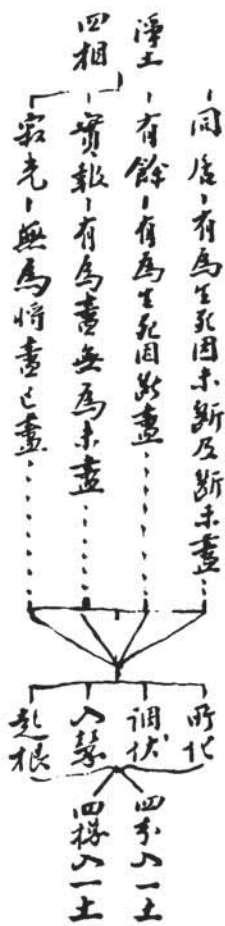 淨土
四相
同居-有為生死因未斷及斷未盡
有餘-有為生死因斷盡
實報-有為盡無為未盡
寂光-無為將盡已盡
所化
調伏
入慧
起根
四 入一土
四 入一土